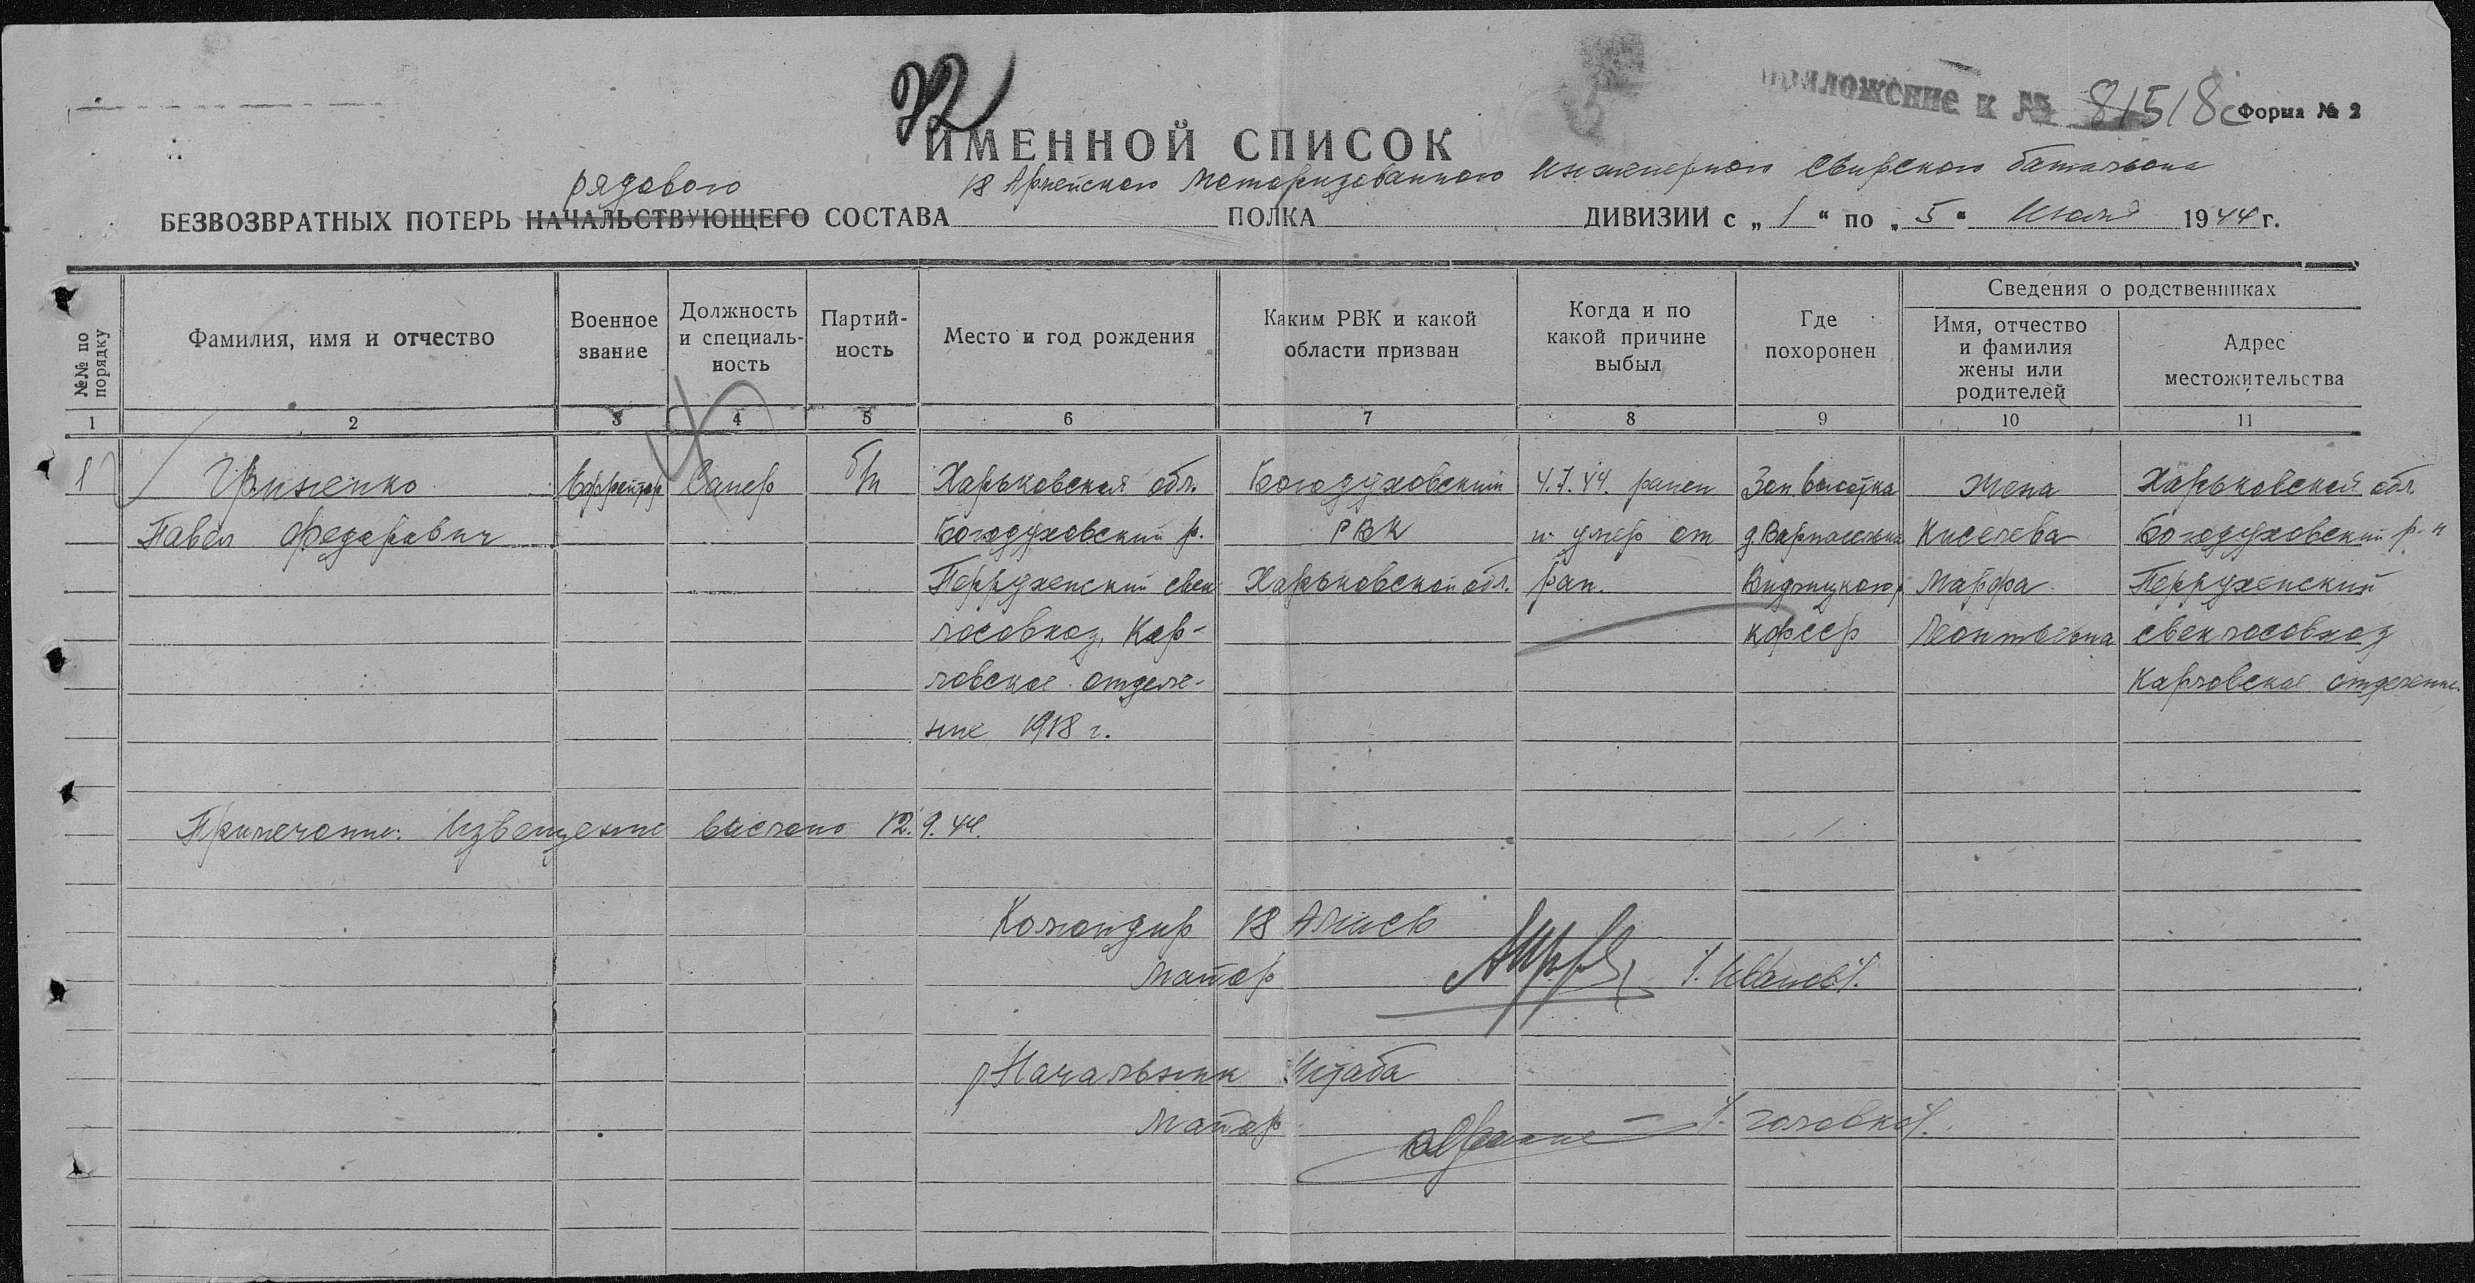 32
Приложение к № 81518с Форма № 2
ИМЕННОЙ СПИСОК
рядового 18 Армейского Моторизованного Инженерного Свирского батальона
БЕЗВОЗВРАТНЫХ ПОТЕРЬ НАЧАЛЬСТВУЮЩЕГО СОСТАВА ПОЛКА ДИВИЗИИ с „1“ по „5“ Июля 1944 г.
№№ по порядку
Фамилия, имя и отчество
Военное звание
Должность и специальность
Партийность
Место и год рождения
Каким РВК и какой области призван
Когда и по какой причине выбыл
Где похоронен
Сведения о родственниках
Имя, отчество и фамилия жены или родителей
Адрес местожительства
1 2 3 4 5 6 7 8 9 10 11
1 Гриненко Ефрейтор Сапер б/п Харьковская обл. Богодуховский 4.7.44. ранен Зап высотка Жена Харьковской обл
Павел Федорович Богодуховский р. РВК и умер от д. Киселева Богодуховский р-н
свек Харьковской обл. ран. Видлицкого р Марфа
лосовхоз, Кар- КФССР Леонтьевна свеклосовхоз
ловское отделе- Карловское отделение
ние 1918 г.
Примечание: Извещение выслано 12.9.44.
Командир 18 АМИСБ
Майор /Иванов/.
Начальник Штаба
Майор /Головко/.